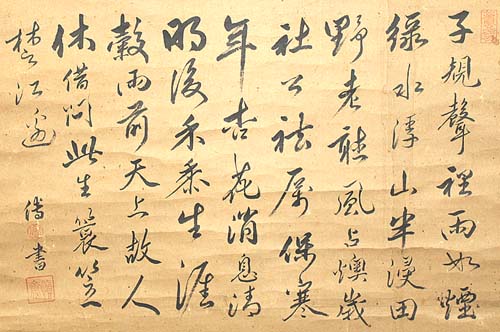 子規聲裡雨如煙
綠水浮山半浸田
野老 風占燠歲
社公祛厲保寒
年杏花消息清
明後禾黍生涯
穀雨前天上故人
休借問此生蓑笠
楚江邊
書